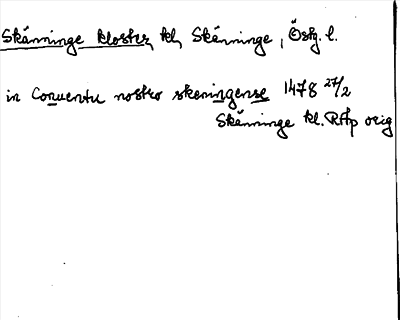 Skänninge kloster, kl, Skänninge, Östg. l.
in Conventu nostro skeningense 1478 27/2
Skänninge kl. RAp orig